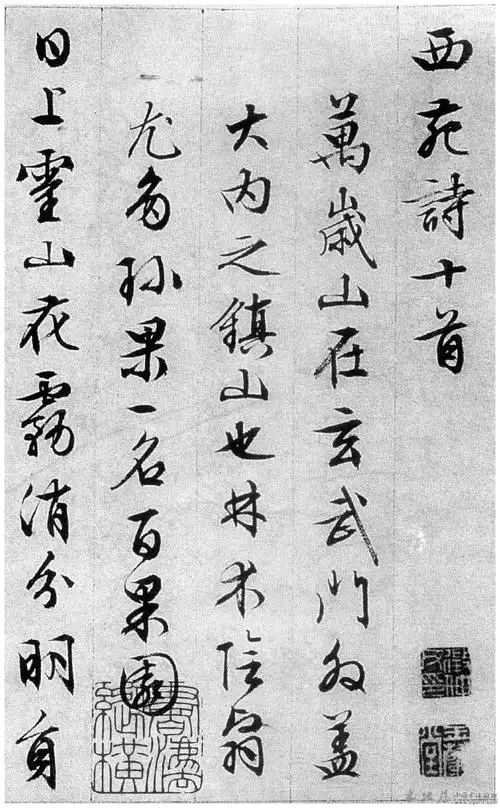 西苑詩十首
萬歲山在玄武門外蓋
大內之鎮山也林木陰翳
尤多珎果一名百果園
日上靈山花霧消分明員